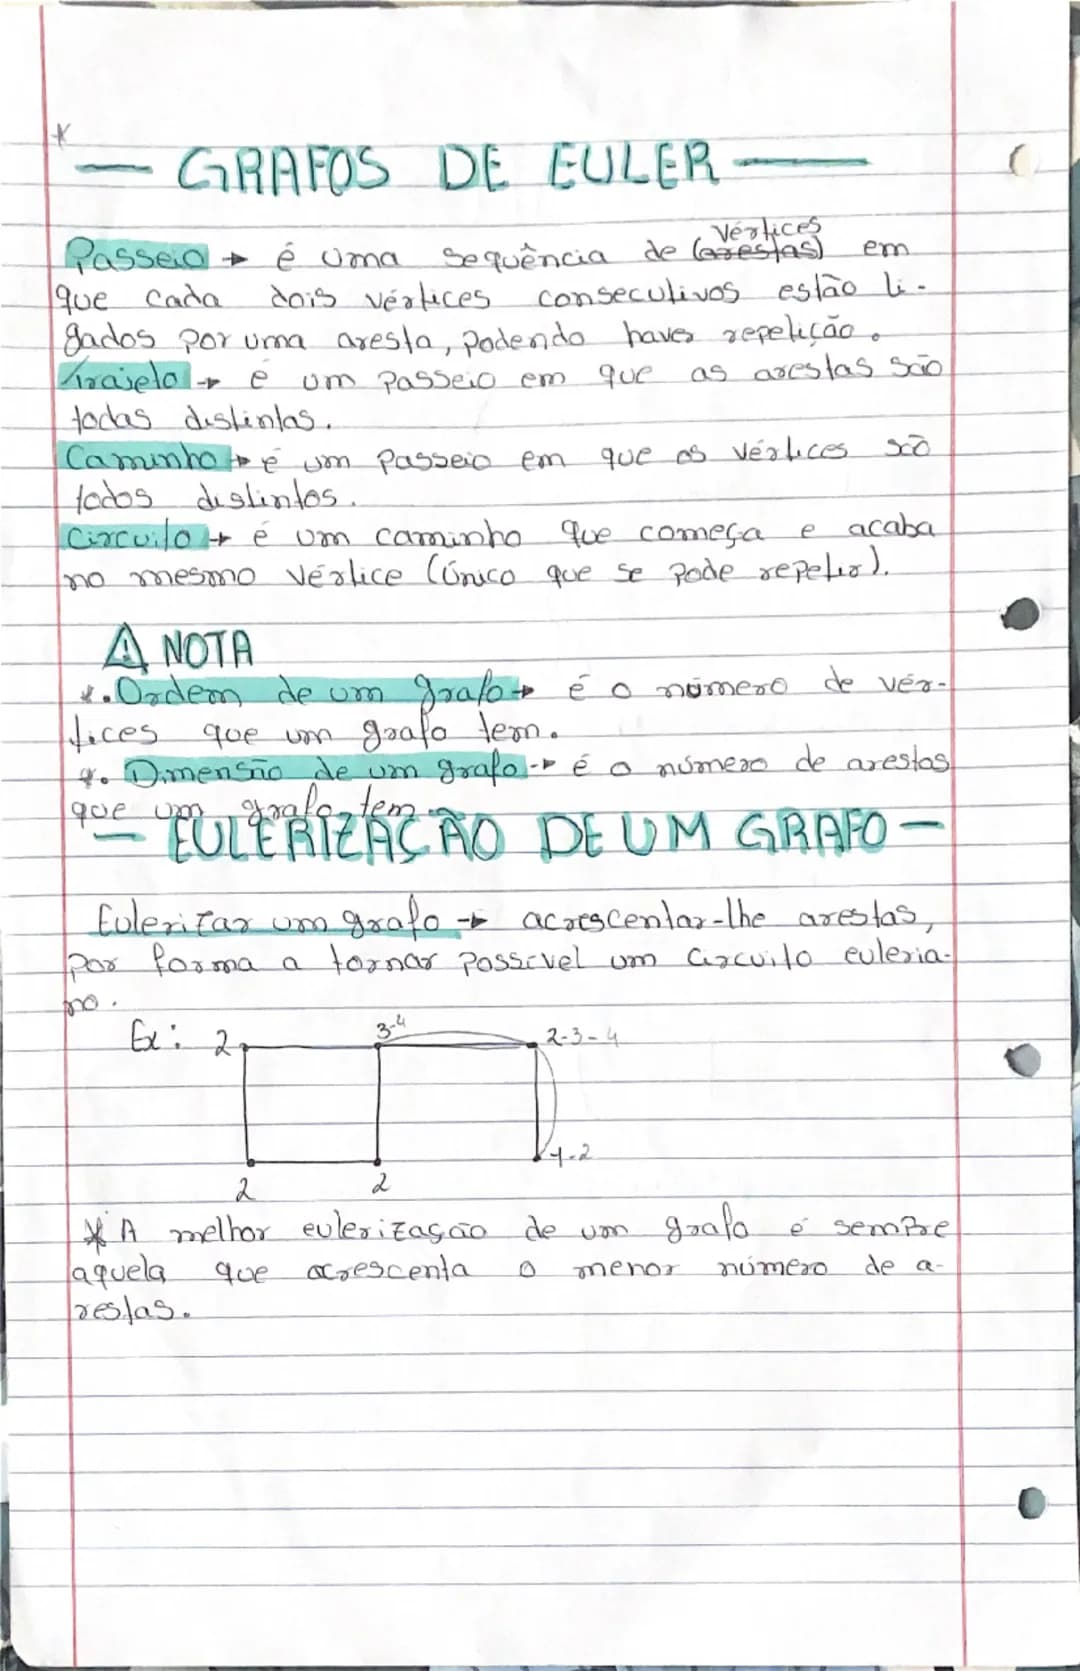 *
— GRAFOS DE EULER —
vértices
Passeio → é uma sequência de (arestas) em
que cada dois vértices consecutivos estão li-
gados por uma aresta, podendo haver repetição.
Trajeto → é um passeio em que as arestas são
todas distintas.
Caminho → é um passeio em que os vértices são
todos distintos.
Circuito → é um caminho que começa e acaba
no mesmo vértice (único que se pode repetir).
⚠ NOTA
*. Ordem de um grafo → é o número de vér-
tices que um grafo tem.
*. Dimensão de um grafo → é o número de arestas
que um grafo tem.
— EULERIZAÇÃO DE UM GRAFO —
Eulerizar um grafo → acrescentar-lhe arestas,
por forma a tornar possível um circuito euleria-
no.
Ex: 2 3-4 2-3-4
1-2
2 2
* A melhor eulerização de um grafo é sempre
aquela que acrescenta o menor número de a-
restas.